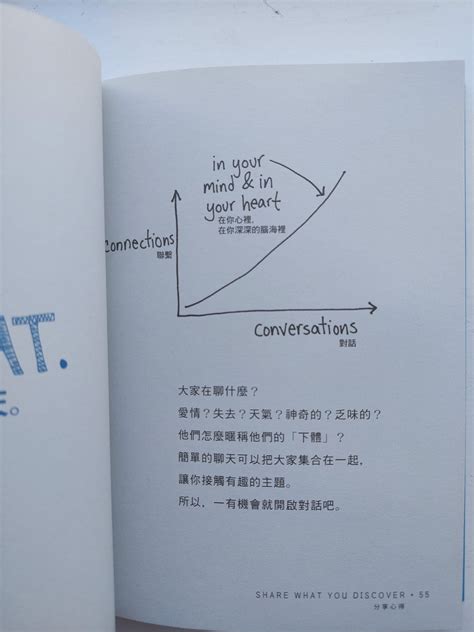 AT.
。
in your
mind & in
your heart
在你心裡,
在你深深的腦海裡
connections
聯繫
conversations
對話
大家在聊什麼？
愛情？失去？天氣？神奇的？乏味的？
他們怎麼暱稱他們的「下體」？
簡單的聊天可以把大家集合在一起，
讓你接觸有趣的主題。
所以，一有機會就開啟對話吧。
SHARE WHAT YOU DISCOVER • 55
分享心得